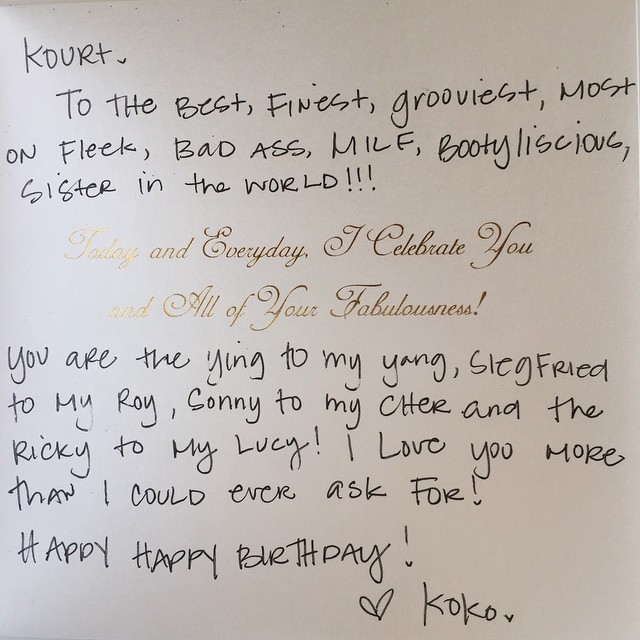 Kourt.
To the Best, Finest, grooviest, Most
on Fleek, Bad Ass, MILF, Bootyliscious,
Sister in the WORLD!!!
Today and Everyday, I Celebrate You
and All of Your Fabulousness!
You are the ying to my yang, Siegfried
to My Roy, Sonny to my Cher and the
Ricky to My Lucy! I Love you more
than I could ever ask For!
Happy Happy Birthday!
♡ Koko.